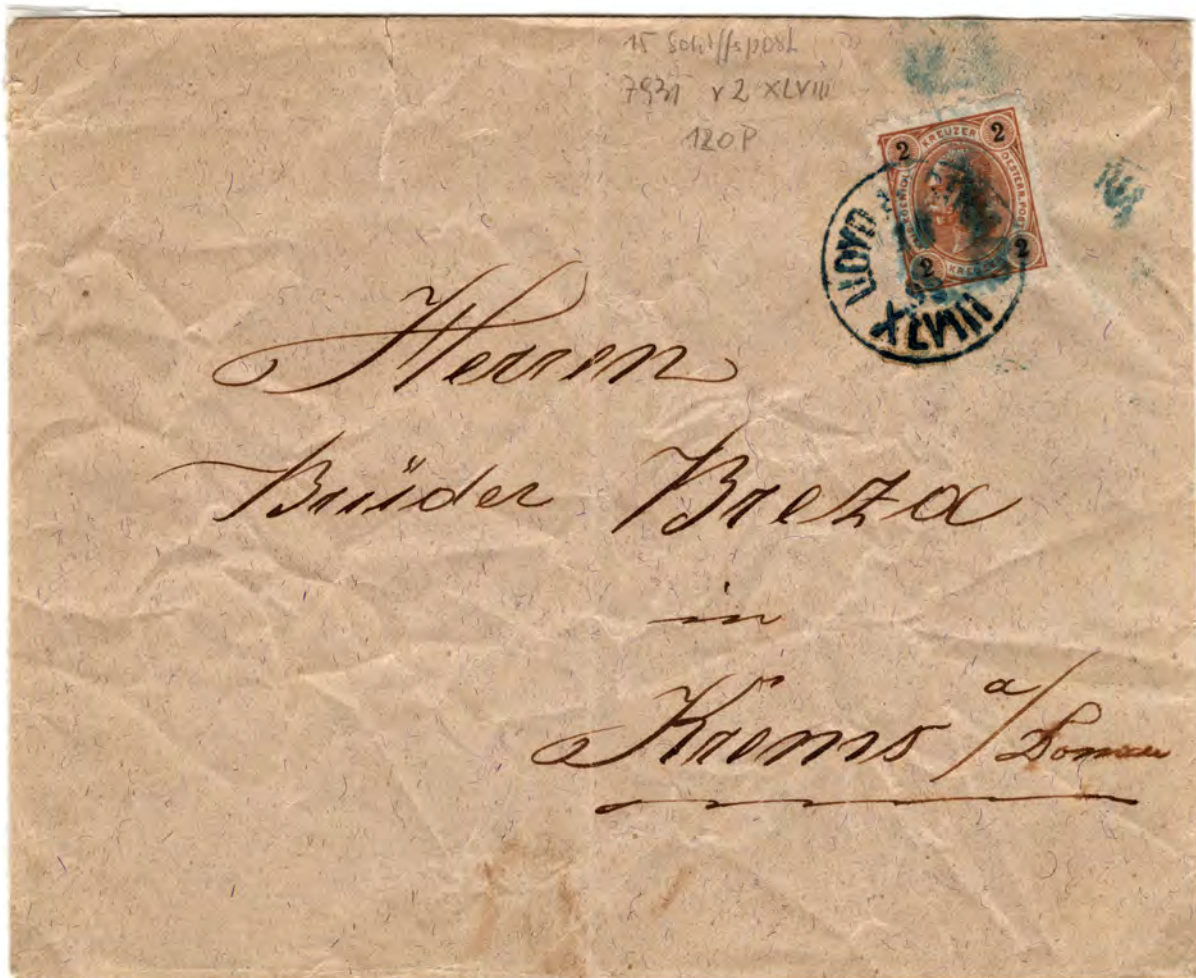 15 Schiffspost
v 2 XLVIII
120 P
2 KREUZER 2
OESTERR. POST
2 2
LLOYD
XLVIII
Herren
Brüder Breza
in
Krems a/Donau